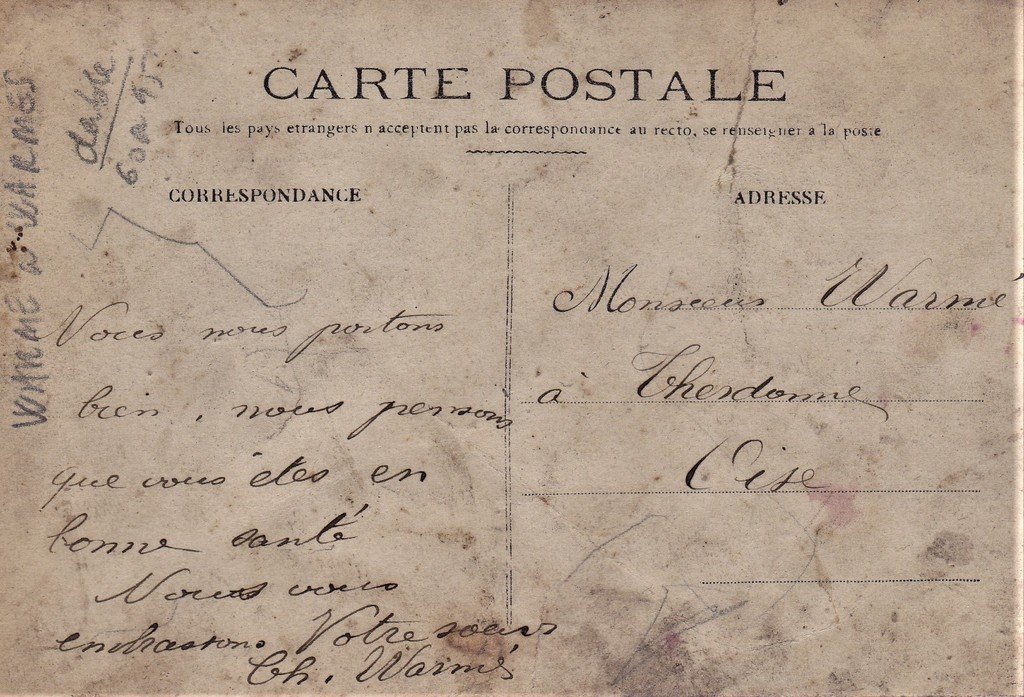 CARTE POSTALE
Tous les pays etrangers n acceptent pas la correspondance au recto, se renseigner a la poste
CORRESPONDANCE
ADRESSE
Nous nous portons
bien, nous pensons
que vous êtes en
bonne santé
Nous vous
embrassons Votre soeur
Ch. Warmé
Monsieur Warmé
à Therdonne
Oise
WARME a WARMES
60 a 95